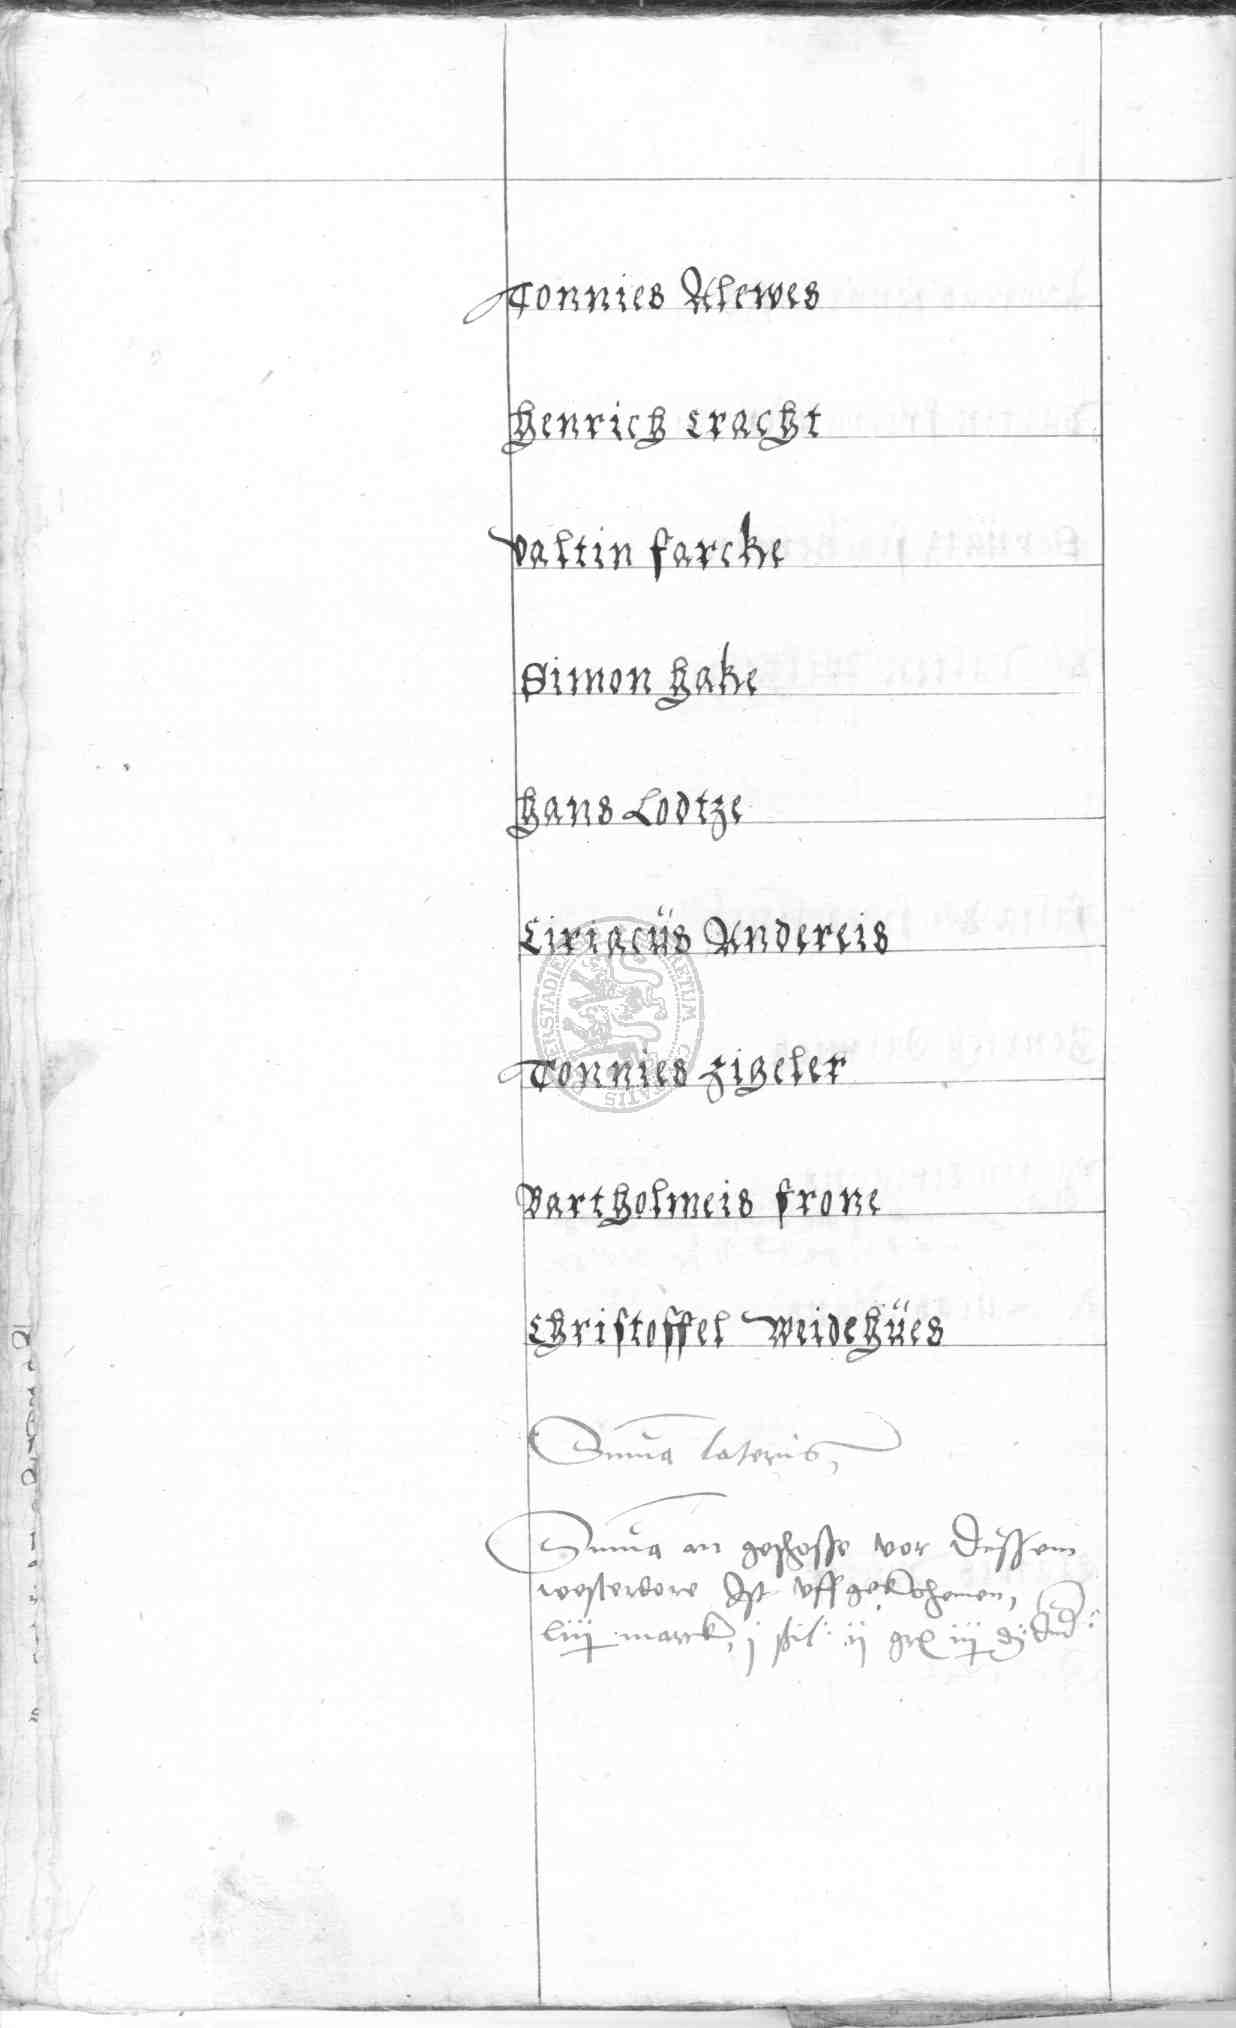 Tonnies Alewes
Henrich Cracht
Valtin farcke
Simon Hake
Hans Lodtze
Ciriacüs Andereis
Tonnies Zigeler
Bartholmeis frone
Christoffel Weidehües
Suma lateris
Suma an geschosse vor Dussem
westerdore Ist uffgekohemen,
liiij marck, j ii iiij